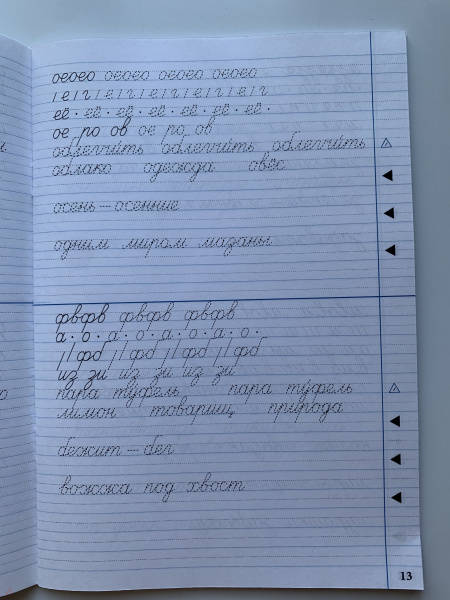 оеоео оеоео оеоео оеоео
её · её · её · её · её · её · её ·
ое ро ов ое ро ов
облегчи́ть облегчи́ть облегчи́ть
облако одежда овёс
осень — осенние
одним миром мазаны
фвфв фвфв фвфв
а · о · а · о · а · о · а · о ·
из зи из зи из зи
пара ту́фель пара ту́фель
лимон товарищ природа
бежит — бег
вожжа под хвост
13